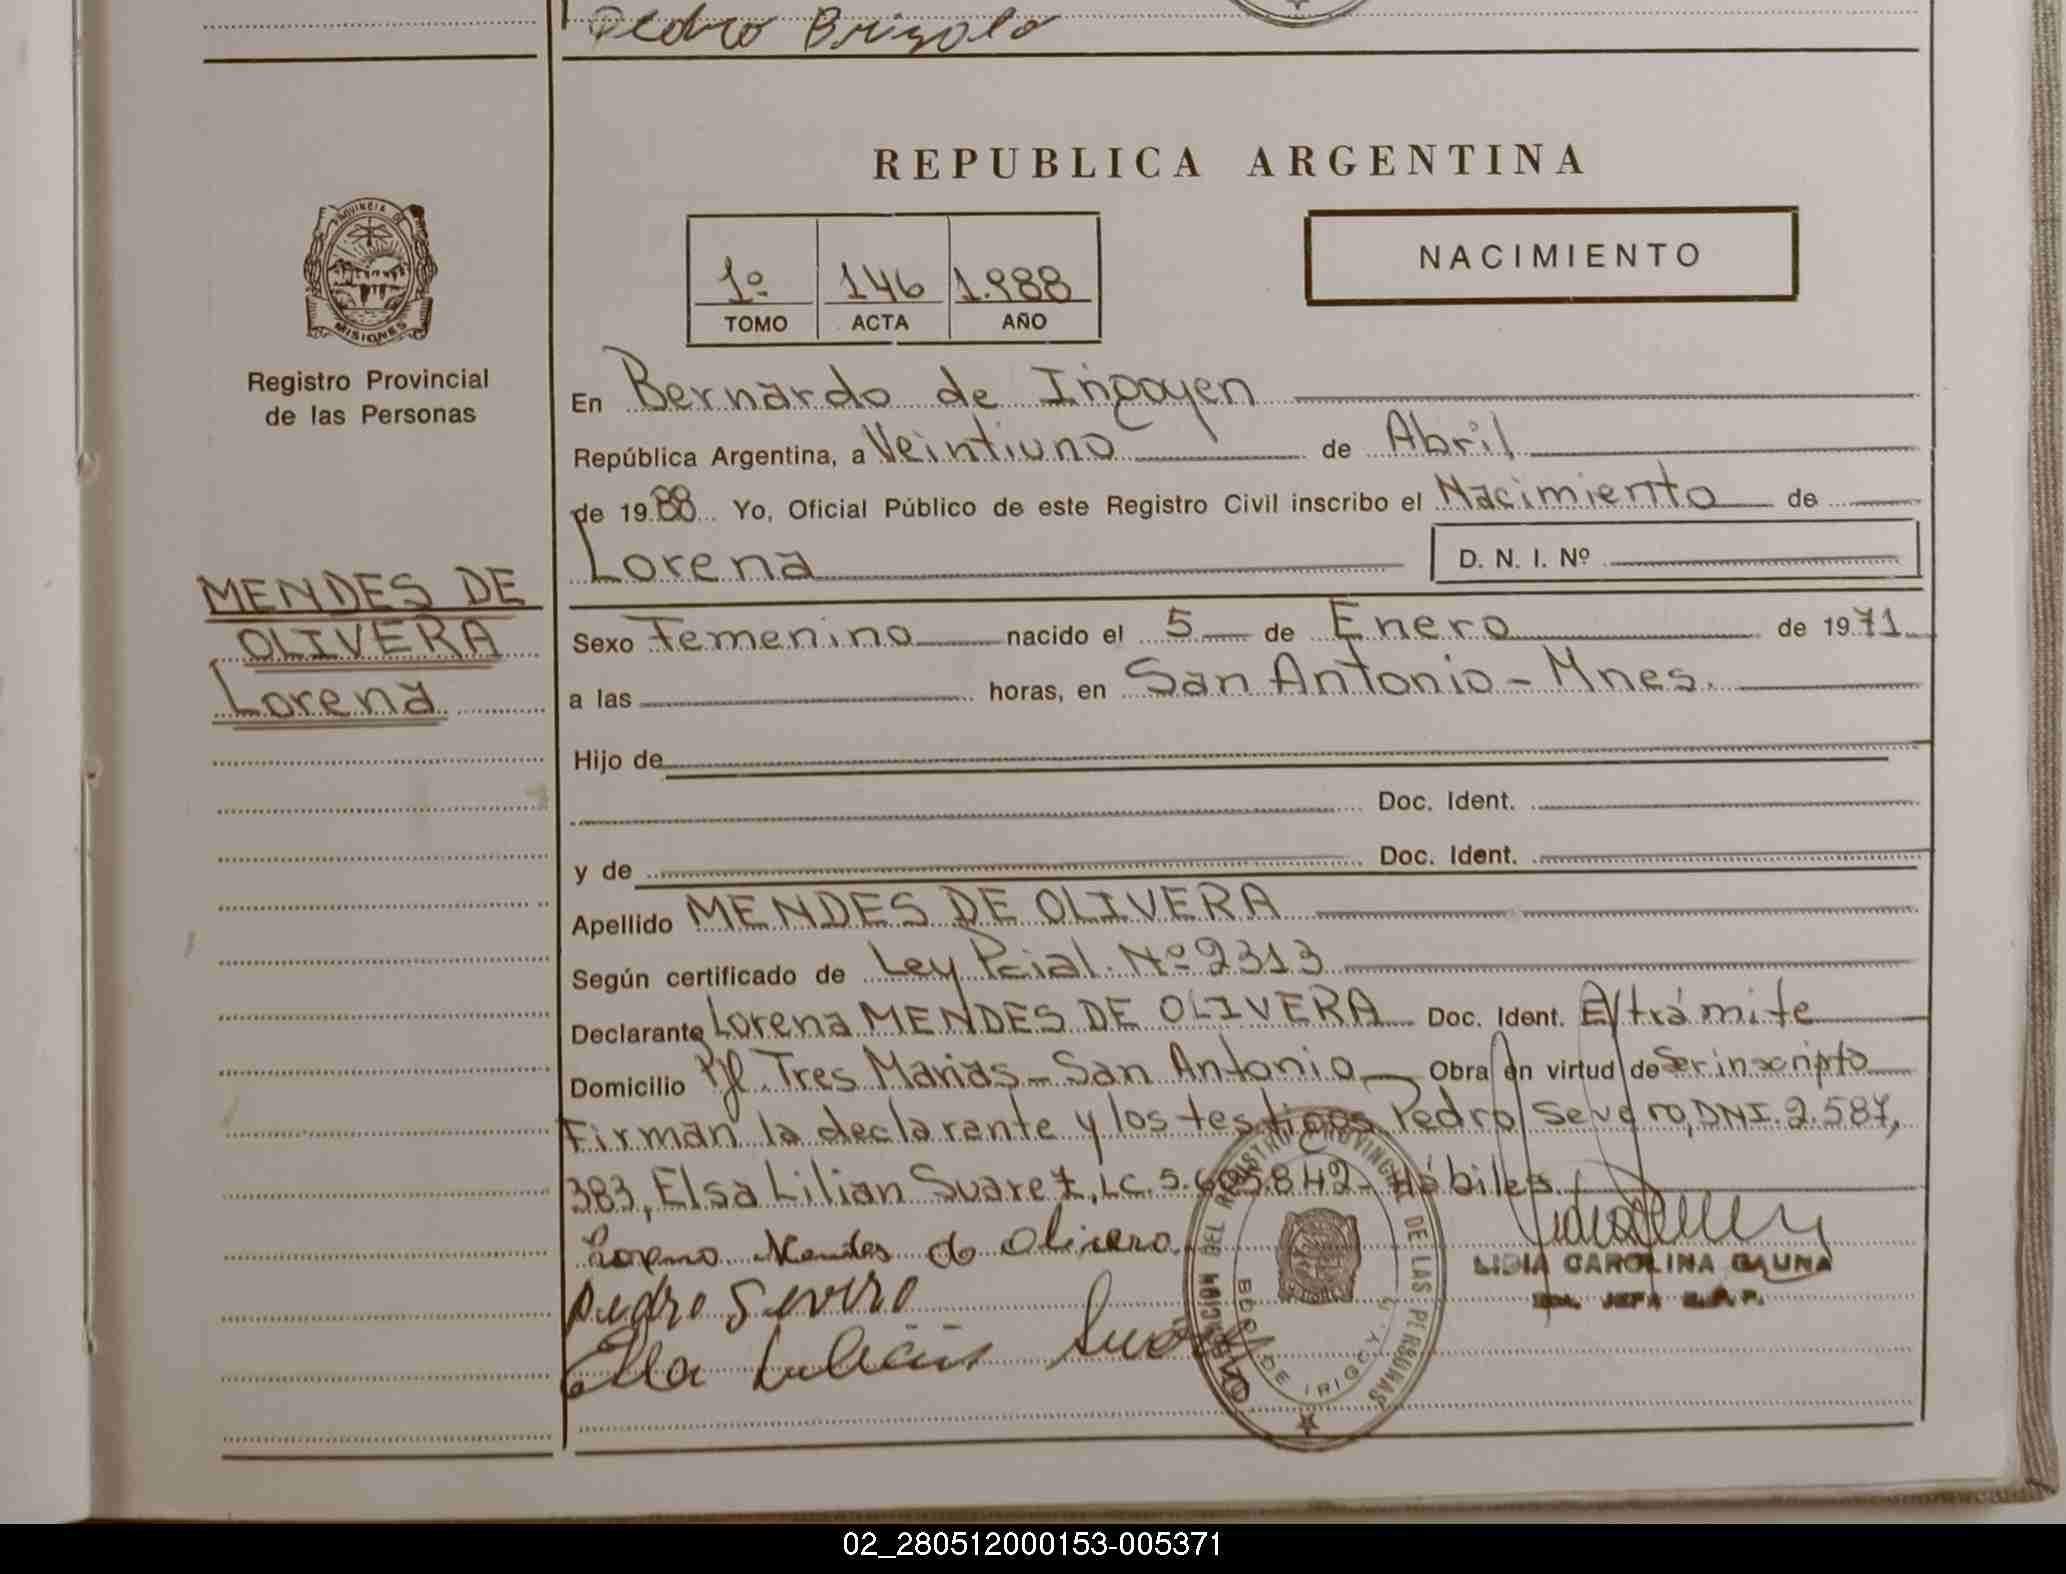 Pedro Brizola
REPUBLICA ARGENTINA
PROVINCIA DE
MISIONES
1º 146 1.988
TOMO ACTA AÑO
NACIMIENTO
Registro Provincial
de las Personas
En Bernardo de Irigoyen
República Argentina, a Veintiuno de Abril
de 19 88 Yo, Oficial Público de este Registro Civil inscribo el Nacimiento de
Lorena D. N. I. Nº
MENDES DE
OLIVERA
Lorena
Sexo Femenino nacido el 5 de Enero de 19 71
a las horas, en San Antonio - Mnes.
Hijo de
Doc. Ident.
y de Doc. Ident.
Apellido MENDES DE OLIVERA
Según certificado de Ley Pcial. Nº 2313
Declarante Lorena MENDES DE OLIVERA Doc. Ident. E/trámite
Domicilio Tres Marias - San Antonio Obra en virtud de Ser inscripto
Firman la declarante y los testigos Pedro Severo, DNI. 2.587,
383, Elsa Lilian Suarez, LC. 5.605.842 - Hábiles.
Lorena Mendes de Olivera
Pedro Severo
Elsa Lilian Suarez
DEL REGISTRO PROVINCIAL DE LAS PERSONAS
BDO. DE IRIGOYEN
LIDIA CAROLINA GAUNA
JEFA
02_280512000153-005371